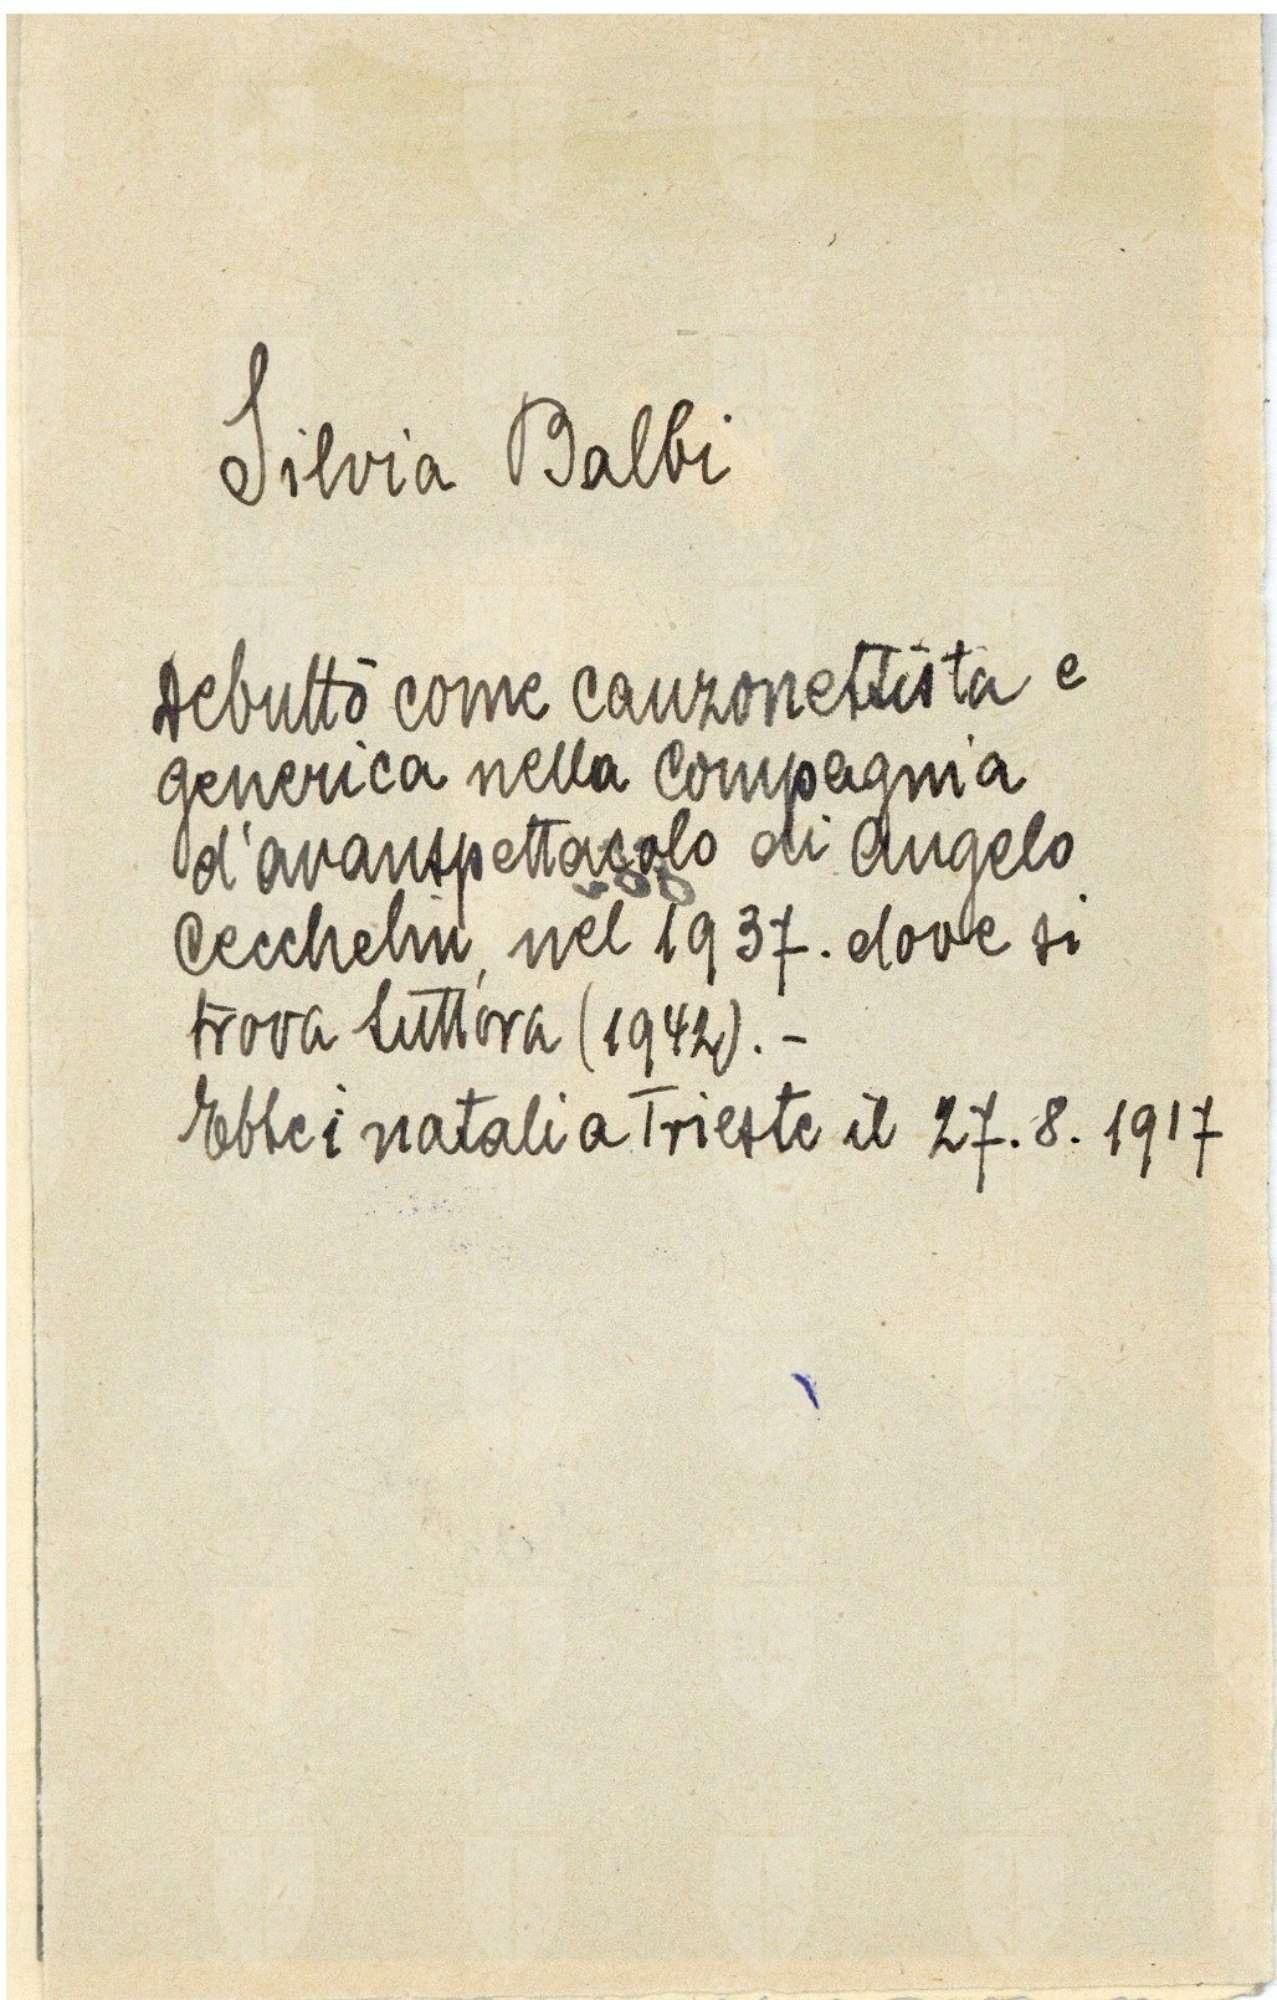 Silvia Balbi
Debuttò come canzonettista e
generica nella Compagnia
d'avanspettacolo di Angelo
Cecchelin, nel 1937. dove si
trova tuttora (1942). -
Ebbe i natali a Trieste il 27. 8. 1917